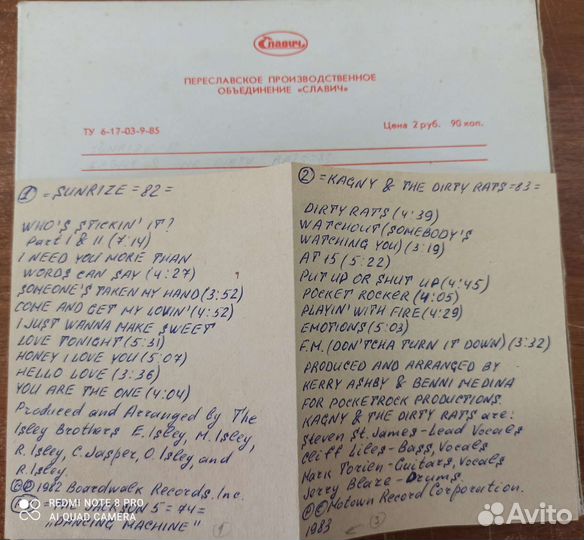 Славич
ПЕРЕСЛАВСКОЕ ПРОИЗВОДСТВЕННОЕ
ОБЪЕДИНЕНИЕ «СЛАВИЧ»
ТУ 6-17-03-9-85
Цена 2 руб. 90 коп.
1 = SUNRIZE = 82 =
WHO'S STICKIN' IT?
Part I & II (7:14)
I NEED YOU MORE THAN
WORDS CAN SAY (4:27)
SOMEONE'S TAKEN MY HAND (3:52)
COME AND GET MY LOVIN' (4:52)
I JUST WANNA MAKE SWEET
LOVE TONIGHT (5:31)
HONEY I LOVE YOU (5:07)
HELLO LOVE (3:36)
YOU ARE THE ONE (4:04)
Produced and Arranged by The
Isley Brothers E. Isley, M. Isley,
R. Isley, C. Jasper, O. Isley, and
R. Isley.
©℗ 1982 Boardwalk Records. Inc.
JACKSON 5 = 74 =
„DANCING MACHINE"
2 = KAGNY & THE DIRTY RATS = 83 =
DIRTY RATS (4:39)
WATCHOUT (SOMEBODY'S
WATCHING YOU) (3:19)
AT 15 (5:22)
PUT UP OR SHUT UP (4:45)
POCKET ROCKER (4:05)
PLAYIN' WITH FIRE (4:29)
EMOTIONS (5:03)
F.M. (DON'TCHA TURN IT DOWN) (3:32)
PRODUCED AND ARRANGED BY
KERRY ASHBY & BENNI MEDINA
FOR POCKETROCK PRODUCTIONS.
KAGNY & THE DIRTY RATS are:
Steven St. James - Lead Vocals
Cliff Liles - Bass, Vocals
Mark Torien - Guitars, Vocals
Jerry Blaze - Drums.
©℗ Motown Record Corporation.
1983
REDMI NOTE 8 PRO
AI QUAD CAMERA
Avito